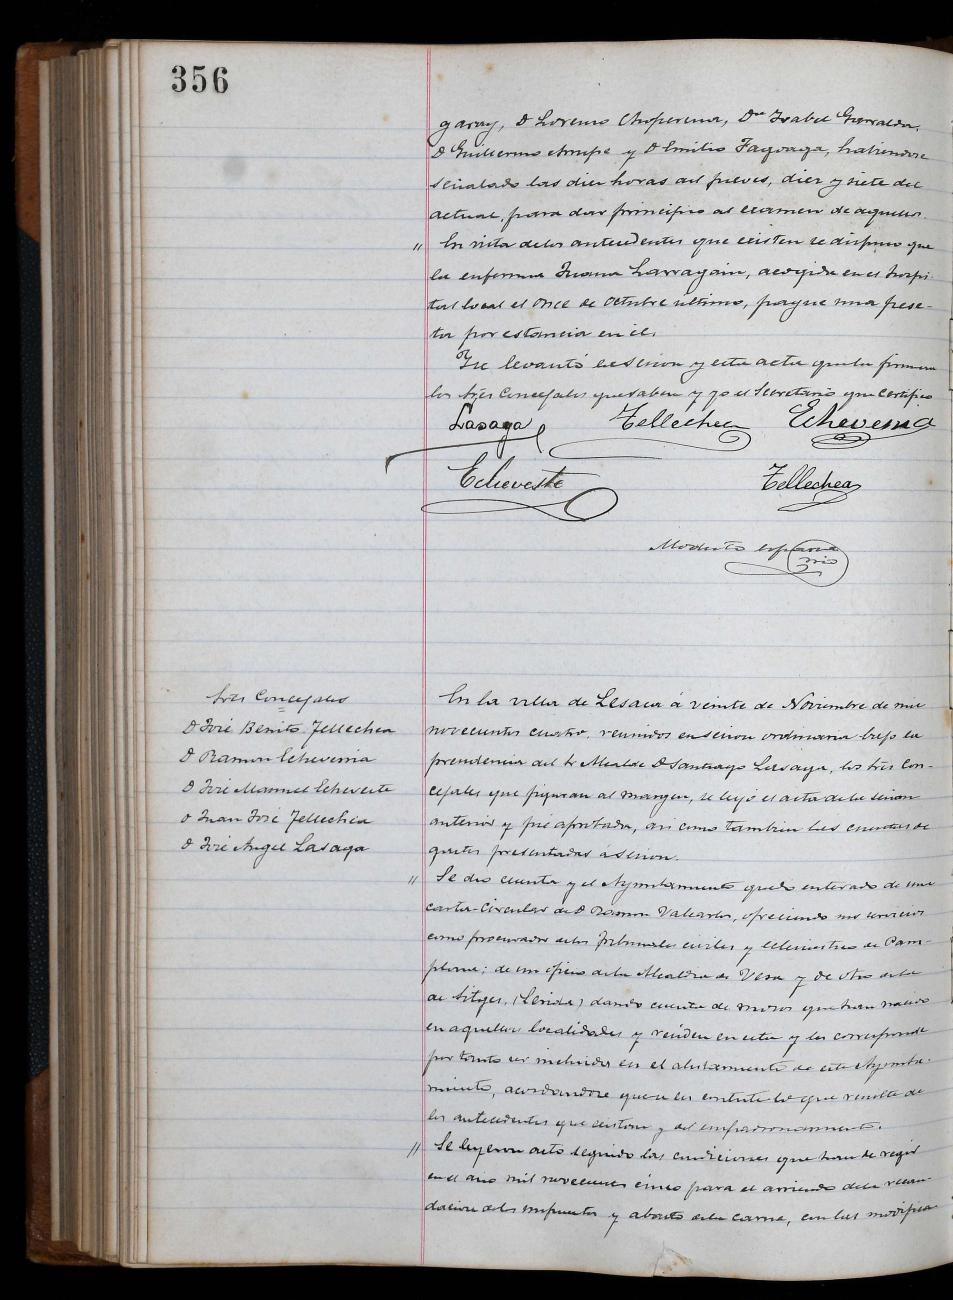 356
garay, D Lorenzo Choperena, Dña Isabel Garralda,
D Guillermo Arrupe y D Emilio Fagoaga, habiendose
señalado las diez horas del jueves, diez y siete del
actual, para dar principio al examen de aquellos.
" En vista de los antecedentes que existen se dispuso que
la enferma Juana Larragain, acogida en el hospi-
tal local el once de Octubre ultimo, pague una pese-
ta por estancia en él.
Se levantó la sesion y esta acta que la firman
los Sres Concejales que saben y yo el Secretario que certifico
Lasaga Tellechea Echeverria
Echeveste Tellechea
Modesto
Sres Concejales
D José Benito Tellechea
D Ramon Echeverria
D José Manuel Echeveste
D Juan José Tellechea
D José Angel Lasaga
En la villa de Lesaca á veinte de Noviembre de mil
novecientos cuatro, reunidos en sesion ordinaria bajo la
presidencia del Sr Alcalde D Santiago Lasaga, los Sres Con-
cejales que figuran al margen, se leyó el acta de la sesion
anterior y fué aprobada, asi como tambien las cuentas de
gastos presentadas á sesion.
" Se dio cuenta y el Ayuntamiento quedó enterado de una
carta-circular de D Ramon Valcarlos, ofreciendo sus servicios
como procurador de los Tribunales civiles y eclesiastico de Pam-
plona; de un oficio de la Alcaldia de Vera y de otro de la
de Sitges, (Lerida) dando cuenta de mozos que han nacido
en aquellas localidades y residen en esta y les corresponde
por tanto ser incluidos en el alistamiento de este Ayunta-
miento, acordandose que se les conteste lo que resulte de
los antecedentes que existan y del empadronamiento.
" Se leyeron acto seguido las condiciones que han de regir
en el año mil novecientos cinco para el arriendo de la recau-
dacion de los impuestos y abasto de la carne, con las modifica